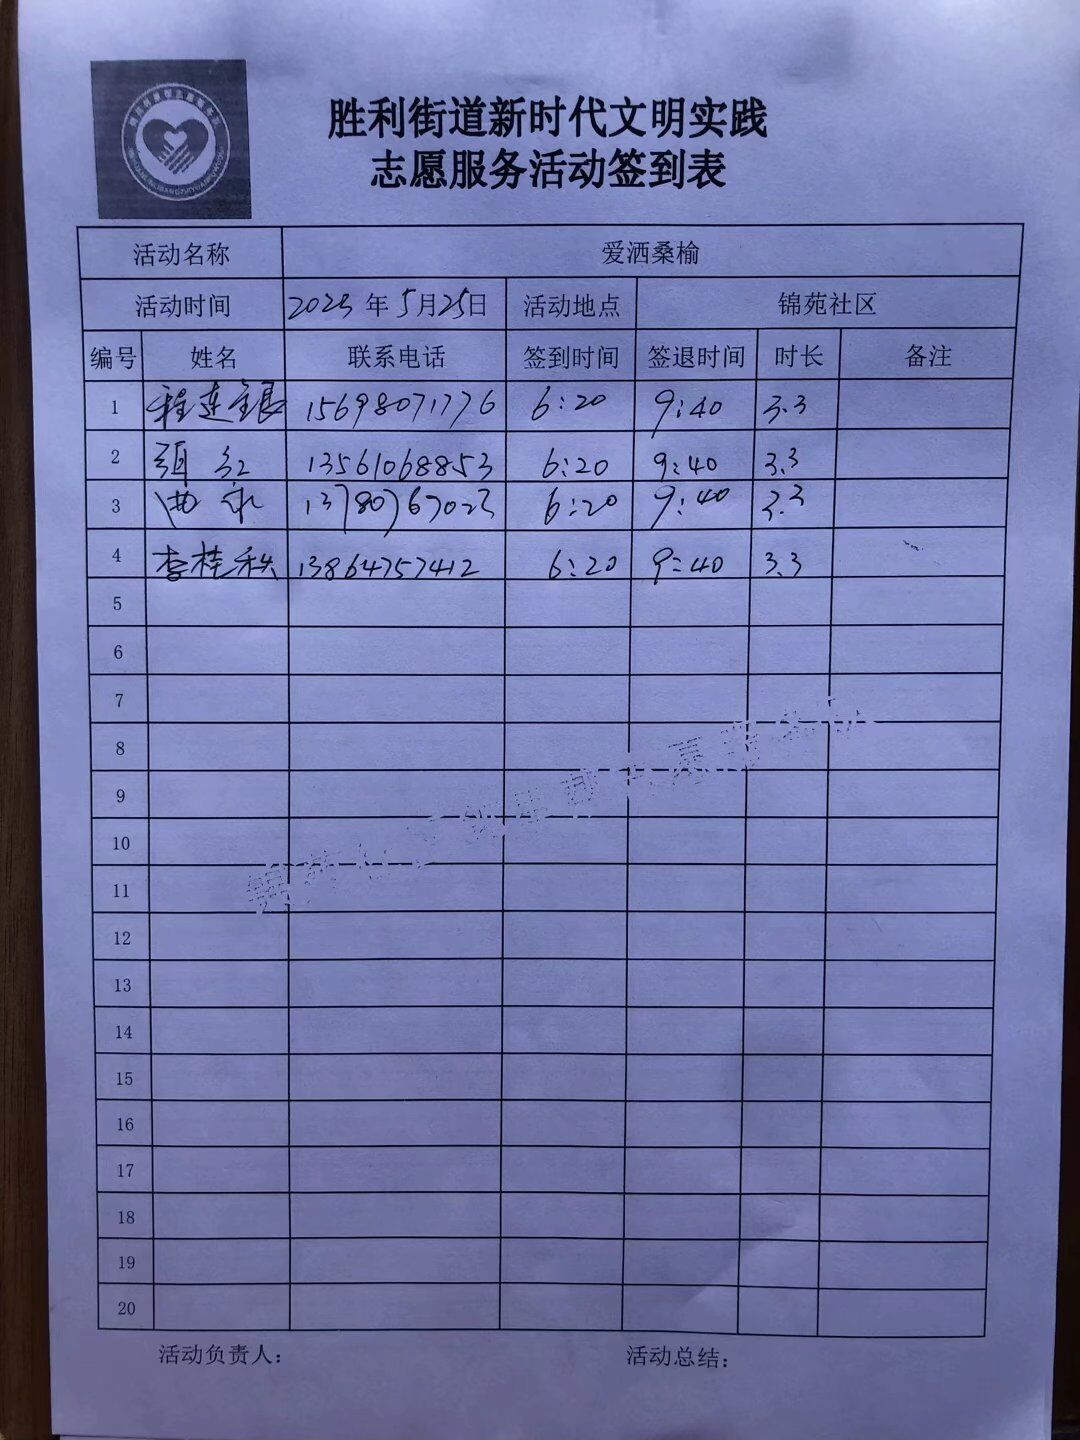 胜利街道新时代文明实践
志愿服务活动签到表
活动名称 爱洒桑榆
活动时间 2023年5月25日 活动地点 锦苑社区
编号 姓名 联系电话 签到时间 签退时间 时长 备注
1 程连银 15698071776 6:20 9:40 3.3
2 红 13561068853 6:20 9:40 3.3
3 13780767023 6:20 9:40 3.3
4 李桂秩 13864757412 6:20 9:40 3.3
5
6
7
8
9
10
11
12
13
14
15
16
17
18
19
20
活动负责人： 活动总结：